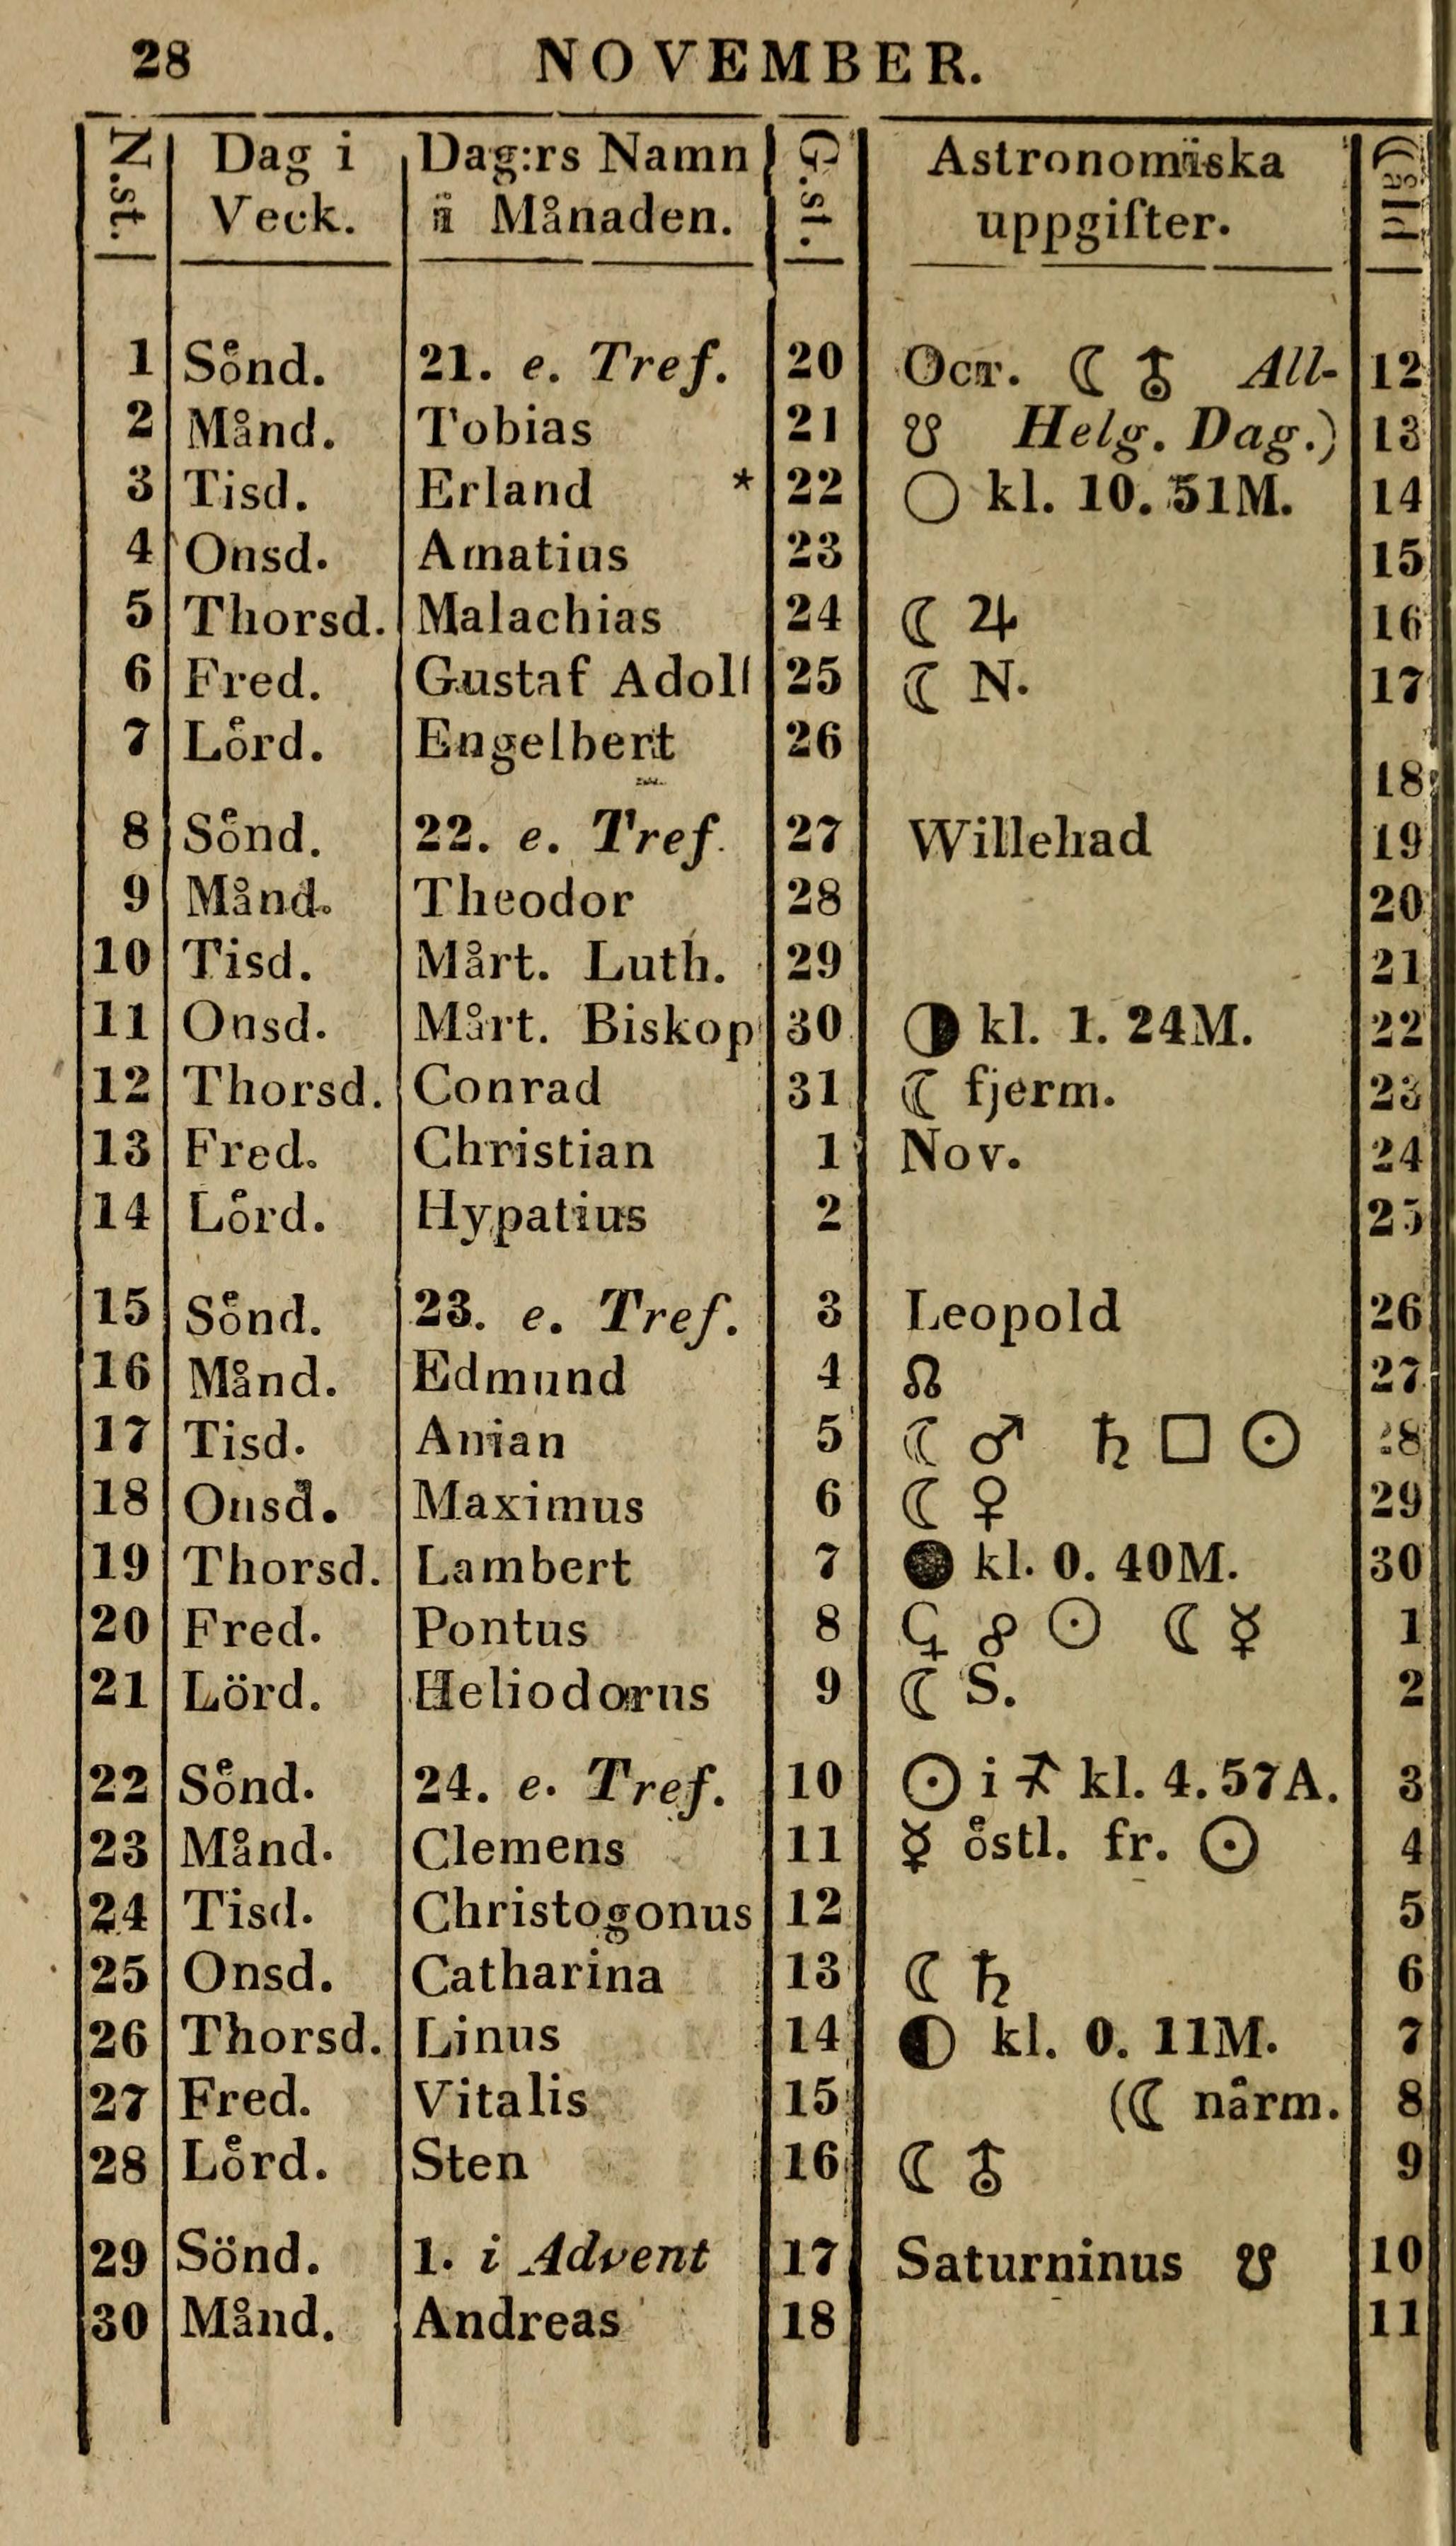 28 NOVEMBER.
N.st. Dag i Dag:rs Namn G.st. Astronomiska (Åld.
Veck. i Månaden. uppgifter.
1 Sönd. 21. e. Tref. 20 Oct. ☾ ⛢ All- 12
2 Månd. Tobias 21 ☋ Helg. Dag.) 13
3 Tisd. Erland * 22 ○ kl. 10. 51M. 14
4 Onsd. Amatius 23 15
5 Thorsd. Malachias 24 ☾ ♃ 16
6 Fred. Gustaf Adolf 25 ☾ N. 17
7 Lörd. Engelbert 26 18
8 Sönd. 22. e. Tref. 27 Willehad 19
9 Månd. Theodor 28 20
10 Tisd. Mårt. Luth. 29 21
11 Onsd. Mårt. Biskop 30 ◑ kl. 1. 24M. 22
12 Thorsd. Conrad 31 ☾ fjerm. 23
13 Fred. Christian 1 Nov. 24
14 Lörd. Hypatius 2 25
15 Sönd. 23. e. Tref. 3 Leopold 26
16 Månd. Edmund 4 ☊ 27
17 Tisd. Anian 5 ☾ ♂ ♄ □ ☉ 28
18 Onsd. Maximus 6 ☾ ♀ 29
19 Thorsd. Lambert 7 ● kl. 0. 40M. 30
20 Fred. Pontus 8 ⚳ ☍ ☉ ☾ ☿ 1
21 Lörd. Heliodorus 9 ☾ S. 2
22 Sönd. 24. e. Tref. 10 ☉ i ♐ kl. 4. 57A. 3
23 Månd. Clemens 11 ☿ östl. fr. ☉ 4
24 Tisd. Christogonus 12 5
25 Onsd. Catharina 13 ☾ ♄ 6
26 Thorsd. Linus 14 ◐ kl. 0. 11M. 7
27 Fred. Vitalis 15 (☾ närm. 8
28 Lörd. Sten 16 ☾ ⛢ 9
29 Sönd. 1. i Advent 17 Saturninus ☋ 10
30 Månd. Andreas 18 11